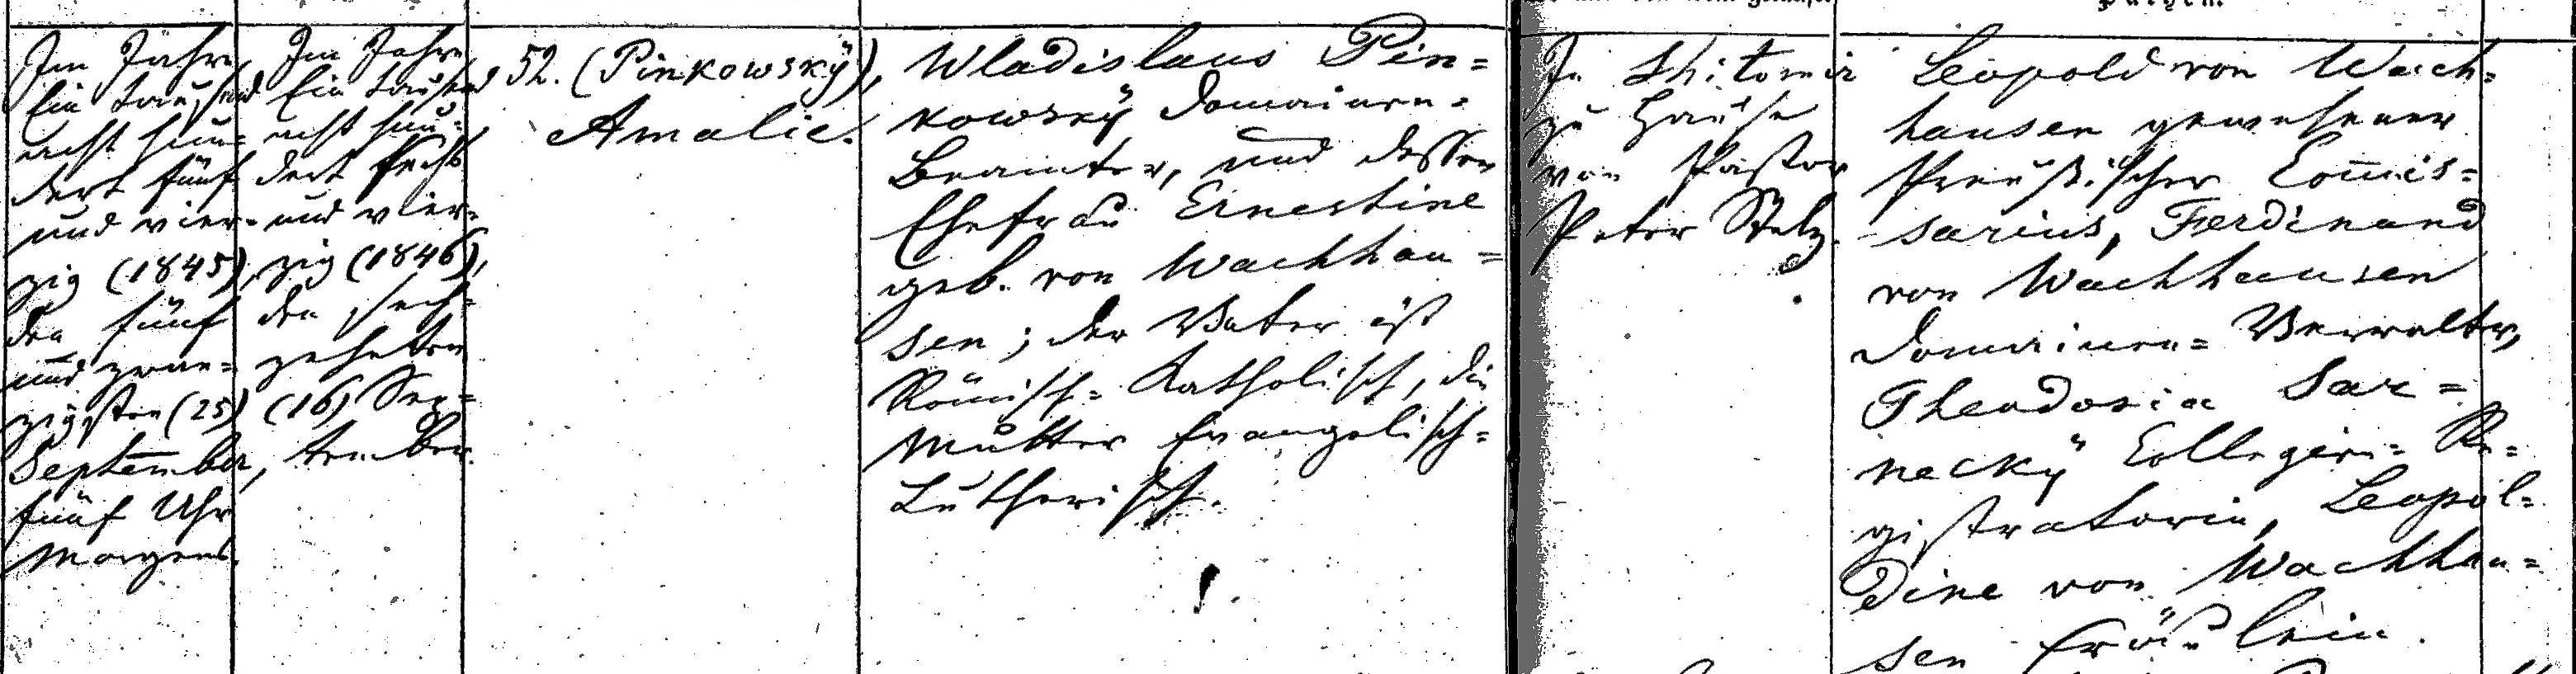 Im Jahre
Ein tausend
acht hun=
dert fünf
und vier=
zig (1845),
den fünf
und zwan=
zigsten (25)
September,
fünf Uhr
Morgens.
Im Jahre
Ein tausend
acht hun=
dert sechs
und vier=
zig (1846),
den sech=
zehnten
(16) Sep=
tember.
52. (Pinkowsky),
Amalie.
Wladislaus Pin=
kowsky Domainen=
Beamter, und dessen
Ehefrau Ernestine
geb. von Wachhau=
sen; der Vater ist
Römisch=Katholisch, die
Mutter Evangelisch=
Lutherisch.
In Shitomir
zu Hause
von Pastor
Peter Stelz.
Leopold von Wach=
hausen gewesener
Preußischer Com̄is=
sarius, Ferdinand
von Wachhausen
Domainen=Verwalter,
Theodosia Sar=
necky Collegien=Re=
gistratorin, Leopol=
dine von Wachhau=
sen Fräulein.